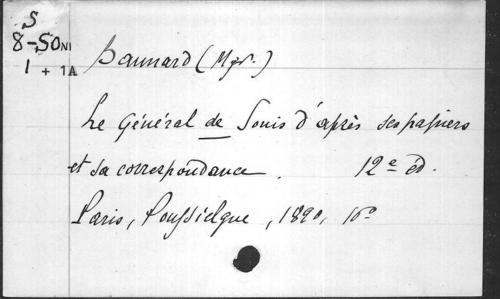 S
8-SONI
1 + 1A
Baunard (Mgr.)
Le Général de Sonis d'après ses papiers
et sa correspondance. 12e éd.
Paris, Poussielgue, 1890, 16°